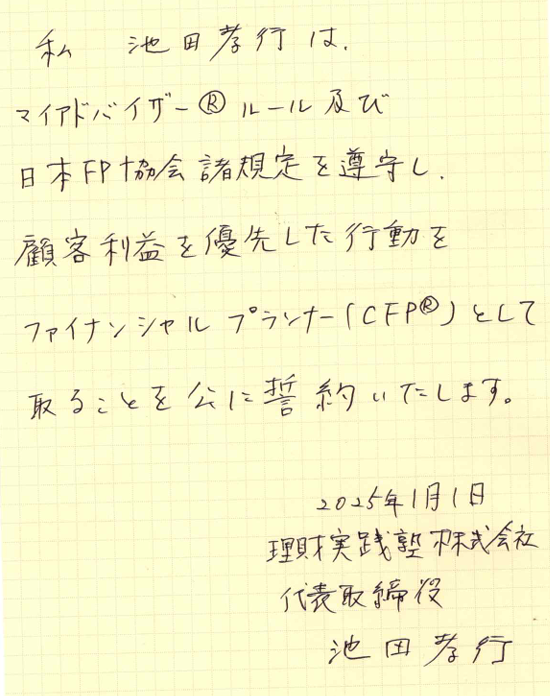 私 池田孝行は、
マイアドバイザー®ルール及び
日本FP協会諸規定を遵守し、
顧客利益を優先した行動を
ファイナンシャルプランナー(CFP®)として
取ることを公に誓約いたします。
2025年1月1日
理財実践塾株式会社
代表取締役
池田孝行